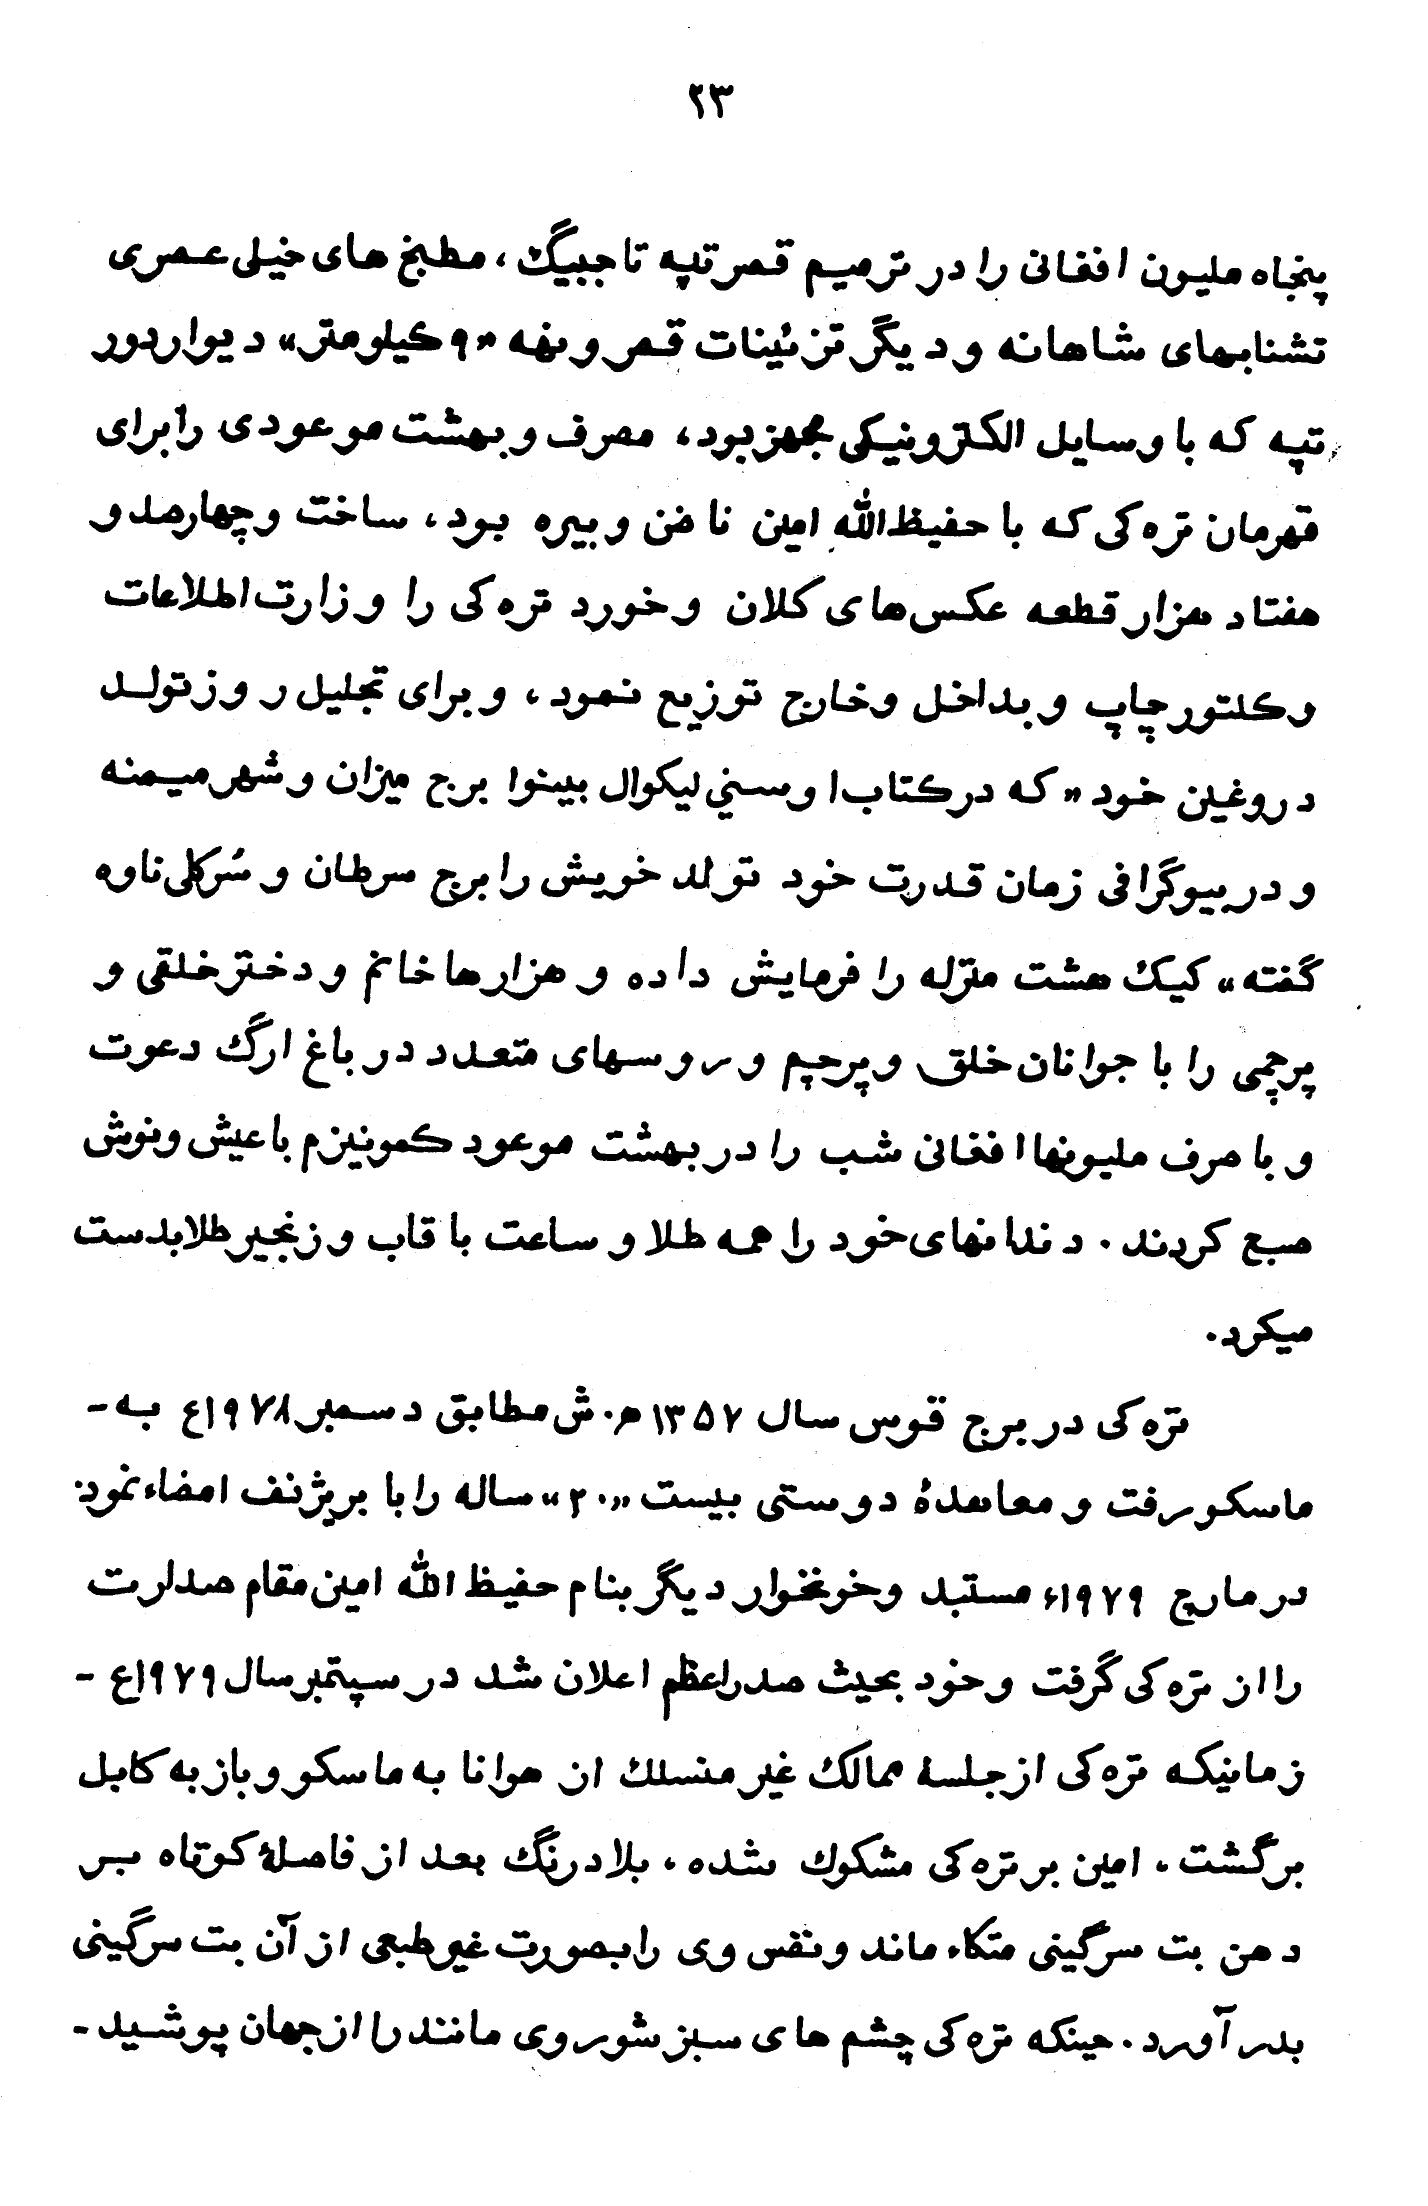 ۲۳
پنجاه ملیون افغانی را در ترمیم قصر تپه تاجبیگ، مطبخ های خیلی عصری
تشنابهای شاهانه و دیگر تزئینات قصر و نهه «۹ کیلومتر» دیوار دور
تپه که با وسایل الکترونیکی مجهز بود، مصرف و بهشت موعودی را برای
قهرمان تره کی که با حفیظ الله امین ناخن و بیره بود، ساخت و چهارصد و
هفتاد هزار قطعه عکس های کلان و خورد تره کی را وزارت اطلاعات
وکلتور چاپ و بداخل وخارج توزیع نمود، و برای تجلیل روز تولد
دروغین خود «که در کتاب اوسني لیکوال بینوا برج میزان و شهر میمنه
و در بیوگرافی زمان قدرت خود تولد خویش را برج سرطان و سُرکلی ناوه
گفته» کیک هشت منزله را فرمایش داده و هزارها خانم و دختر خلقی و
پرچمی را با جوانان خلق و پرچم و روسهای متعدد در باغ ارگ دعوت
و با صرف ملیونها افغانی شب را در بهشت موعود کمونیزم باعیش ونوش
صبح کردند. دندانهای خود را همه طلا و ساعت با قاب و زنجیر طلا بدست
میکرد.
تره کی در برج قوس سال ۱۳۵۷ ه.ش مطابق دسمبر ۱۹۷۸ع به-
ماسکو رفت و معاهدهٔ دوستی بیست «۲۰» ساله را با بریژنف امضاء نمود.
در مارچ ۱۹۷۹ء مستبد وخونخوار دیگر بنام حفیظ الله امین مقام صدارت
را از تره کی گرفت و خود بحیث صدراعظم اعلان شد در سپتمبر سال ۱۹۷۹ع -
زمانیکه تره کی از جلسهٔ ممالک غیر منسلک از هوانا به ماسکو و باز به کابل
برگشت، امین بر تره کی مشکوک شده، بلادرنگ بعد از فاصلهٔ کوتاه بر
دهن بت سرگینی متکاء ماند و نفس وی را بصورت غیر طبعی از آن بت سرگینی
بدر آورد. حینکه تره کی چشم های سبز شوروی مانند را از جهان پوشید-